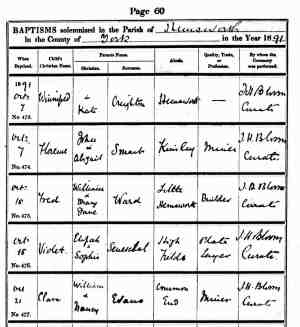 Page 60
BAPTISMS solemnized in the Parish of Hemsworth
in the County of York in the Year 1891
When Baptized. Child's Christian Name. Parents Name. Christian. Surname. Abode. Quality, Trade, or Profession. By whom the Ceremony was performed.
1891 Oct 7 No. 473. Winnifred & Kate Creighton Hemsworth — J.H. Bloom Curate
Oct 7 No. 474. Florence John & Abigail Smart Kinsley Miner J.H. Bloom Curate
Oct 18 No. 475. Fred William & Mary Jane Ward Little Hemsworth Builder J.H. Bloom Curate
Oct 18 No. 476. Violet Elijah & Sophia Seneschal High Fields Plate layer J.H. Bloom Curate
Oct 21 No. 477. Clara William & Nancy Evans Common End Miner J.H. Bloom Curate